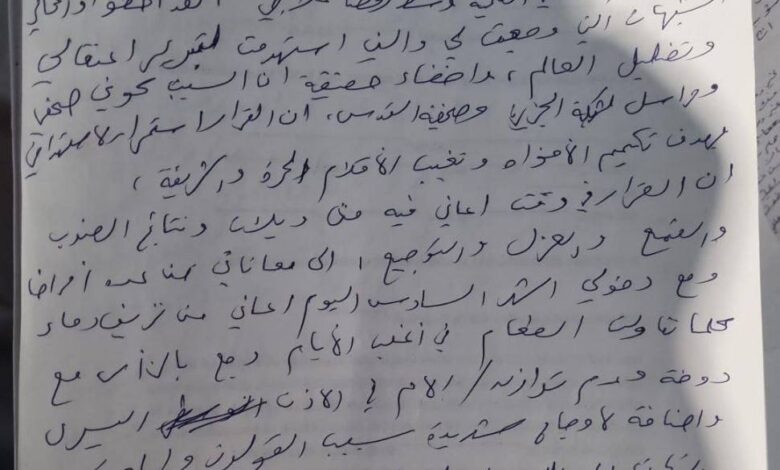 الشبهات التي وضعت لي والتي استهدفت لتبرير اعتقالي
وتضليل العالم، واخفاء حقيقة ان السبب كوني صحفي
ومراسل لشبكة الجزيرة وصحيفة القدس، ان القرار استمرار لاستهدافي
بهدف تكميم الافواه وتغييب الأقلام الحرة والشريفة،
ان القرار في وقت اعاني فيه من ويلات ونتائج الضرب
والقمع والعزل والتجويع، الى معاناتي من عدة أمراض
ومع دخولي الشهر السادس اليوم اعاني من نزيف دماء
كلما تناولت الطعام في أغلب الأيام وجع بالرأس مع
دوخة وعدم توازن / الام في الاذن اليسرى
واضافة لاوجاع شديدة بسبب القولون